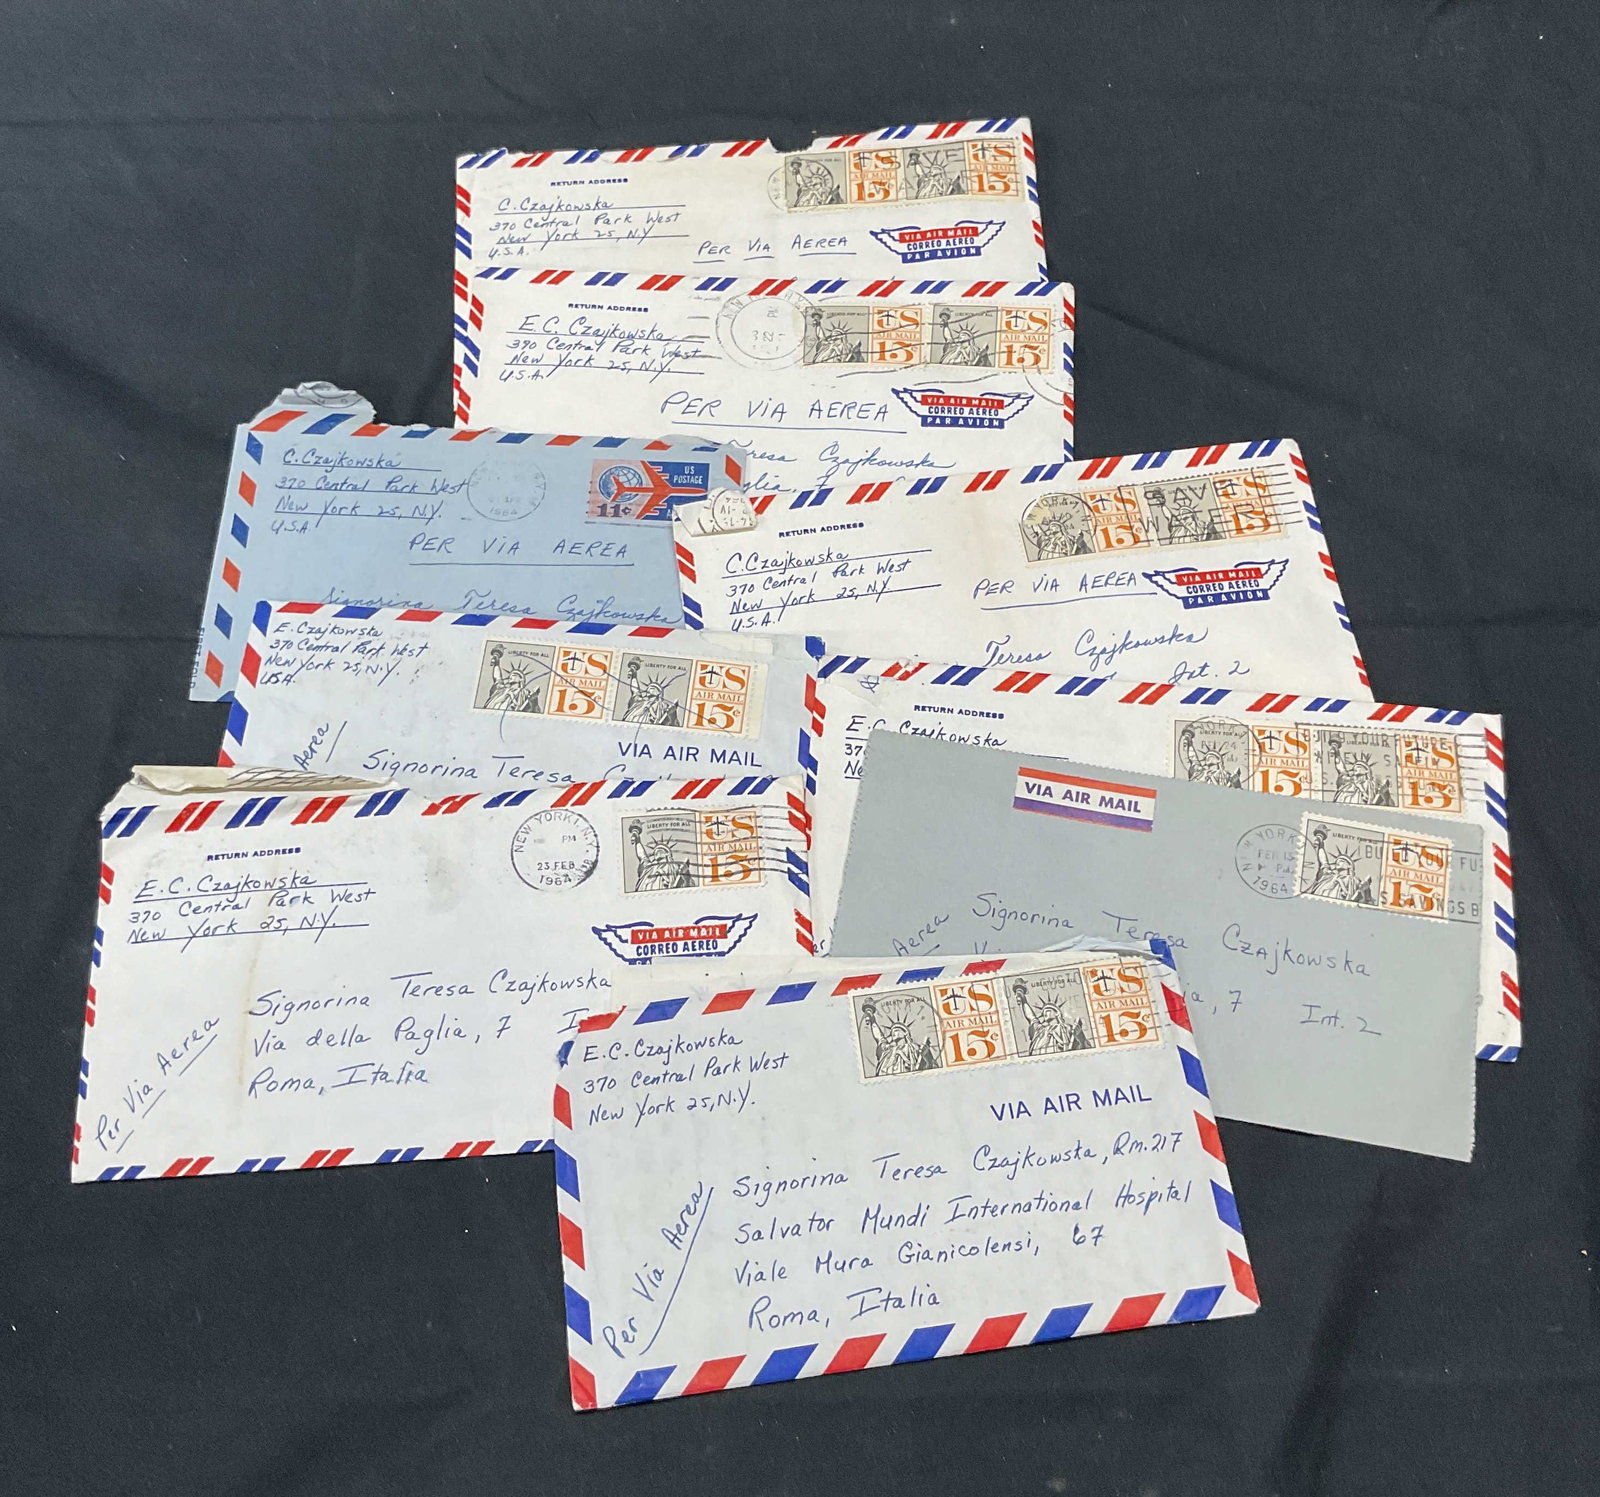 RETURN ADDRESS
C. Czajkowska
370 Central Park West
New York 25, N.Y
U.S.A.
PER VIA AEREA
LIBERTY FOR ALL
US
AIR MAIL
15¢
SAVE
US
AIR MAIL
15¢
VIA AIR MAIL
CORREO AEREO
PAR AVION
RETURN ADDRESS
E. C. Czajkowska
370 Central Park West
New York 25, N.Y.
U.S.A.
PER VIA AEREA
LIBERTY FOR ALL
US
AIR MAIL
15¢
LIBERTY FOR ALL
US
AIR MAIL
15¢
VIA AIR MAIL
CORREO AEREO
PAR AVION
Teresa Czajkowska
Paglia, 7
C. Czajkowska
370 Central Park West
New York 25, N.Y.
U.S.A
PER VIA AEREA
1964
US
POSTAGE
11¢
Signorina Teresa Czajkowska
RETURN ADDRESS
C. Czajkowska
370 Central Park West
New York 25, N.Y
U.S.A.
PER VIA AEREA
US
AIR MAIL
15¢
VIA AIR MAIL
CORREO AEREO
PAR AVION
Teresa Czajkowska
Int. 2
E. Czajkowska
370 Central Park West
New York 25, N.Y.
USA.
Aerea
LIBERTY FOR ALL
US
AIR MAIL
15¢
LIBERTY FOR ALL
US
AIR MAIL
15¢
VIA AIR MAIL
Signorina Teresa
RETURN ADDRESS
E. C. Czajkowska
370
Ne
LIBERTY FOR ALL
US
AIR MAIL
15¢
US
AIR MAIL
15¢
BUILD YOUR FUTURE
RETURN ADDRESS
E. C. Czajkowska
370 Central Park West
New York 25, N.Y.
NEW YORK 1, N.Y.
PM
23 FEB
1964
LIBERTY FOR ALL
US
AIR MAIL
15¢
VIA AIR MAIL
CORREO AEREO
Signorina Teresa Czajkowska
Via della Paglia, 7
Roma, Italia
Per Via Aerea
VIA AIR MAIL
YORK
FEB 15
1964
LIBERTY FOR ALL
US
AIR MAIL
15¢
YOUR FU
SAVINGS B
Aerea
Signorina Teresa Czajkowska
ia, 7 Int. 2
E. C. Czajkowska
370 Central Park West
New York 25, N.Y.
LIBERTY FOR ALL
US
AIR MAIL
15¢
US
AIR MAIL
15¢
VIA AIR MAIL
Per Via Aerea
Signorina Teresa Czajkowska, Rm. 217
Salvator Mundi International Hospital
Viale Mura Gianicolensi, 67
Roma, Italia